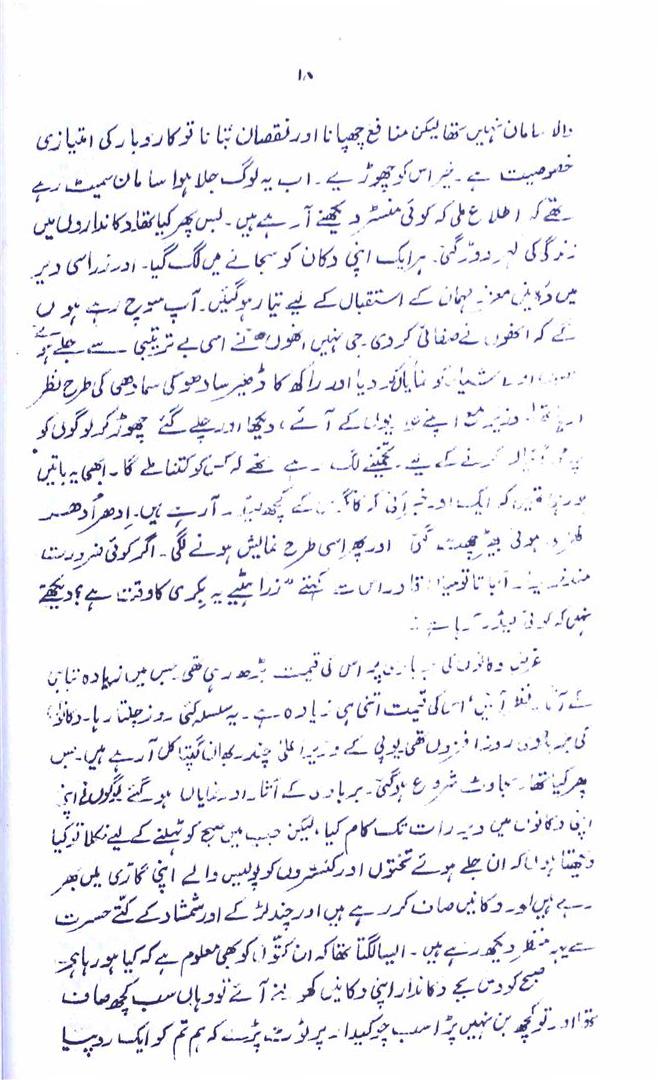 ۱۸
والا سامان نہیں تھا لیکن منافع چھپانا اور نقصان بتانا تو کاروبار کی امتیازی
خصوصیت ہے۔ خیر اس کو چھوڑیے۔ اب یہ لوگ جلا ہوا سامان سمیٹ رہے
تھے کہ اطلاع ملی کہ کوئی منسٹر دیکھنے آ رہے ہیں۔ بس پھر کیا تھا۔ دکانداروں میں
زندگی کی لہر دوڑ گئی۔ ہر ایک اپنی دکان کو سجانے میں لگ گیا۔ اور ذرا سی دیر
میں دلہنیں معزز مہمان کے استقبال کے لیے تیار ہو گئیں۔ آپ سوچ رہے ہوں
گے کہ انھوں نے صفائی کر دی۔ جی نہیں انھوں نے اسی بے ترتیبی سے جلے ہوئے
اشیاء کو نمایاں کر دیا اور راکھ کا ڈھیر سادھو کی سمادھی کی طرح نظر
وزیر مع اپنے کے آئے، دیکھا اور چلے گئے چھوڑ کر لوگوں کو
کرنے کے لیے۔ تخمینے لگ رہے تھے کہ کس کو کتنا ملے گا۔ ابھی یہ باتیں
ہو رہی تھیں کہ ایک اور خبر آئی کہ کانگریس کے کچھ لیڈر آ رہے ہیں۔ اِدھر اُدھر
ہوئی بھیڑ چھٹ گئی اور پھر اسی طرح نمائش ہونے لگی۔ اگر کوئی ضرورت
آ جاتا تو اس سے کہتے "ذرا ہٹیے یہ بکری کا وقت ہے؟ دیکھتے
نہیں کہ کوئی لیڈر آ رہا ہے"۔
غرض دکانوں کی بربادی پر اس کی قیمت بڑھ رہی تھی جس میں زیادہ تباہی
کے آثار نظر آئیں اس کی قیمت اتنی ہی زیادہ ہے۔ یہ سلسلہ کئی روز چلتا رہا۔ دکانوں
کی بربادی روز افزوں تھی یوپی کے وزیر اعلیٰ چندر بھان گپتا کل آ رہے ہیں۔ بس
پھر کیا تھا سجاوٹ شروع ہو گئی۔ بربادی کے آثار اور نمایاں ہو گئے لوگوں نے اپنی
اپنی دکانوں میں دیر رات تک کام کیا، لیکن جب میں صبح کو ٹہلنے کے لیے نکلا تو کیا
دیکھتا ہوں کہ ان جلے ہوئے تختوں اور کنستروں کو پولیس والے اپنی گاڑی میں بھر
رہے ہیں اور دکانیں صاف کر رہے ہیں اور چند لڑکے اور شمشاد کے کتّے حسرت
سے یہ منظر دیکھ رہے ہیں۔ ایسا لگتا تھا کہ ان کتّوں کو بھی معلوم ہے کہ کیا ہو رہا ہے۔
صبح کو دس بجے دکاندار اپنی دکانیں کھولنے آئے تو وہاں سب کچھ صاف
تھا اور تو کچھ بن نہیں پڑا سب چوکیدار پر ٹوٹ پڑے کہ ہم تم کو ایک روپیا